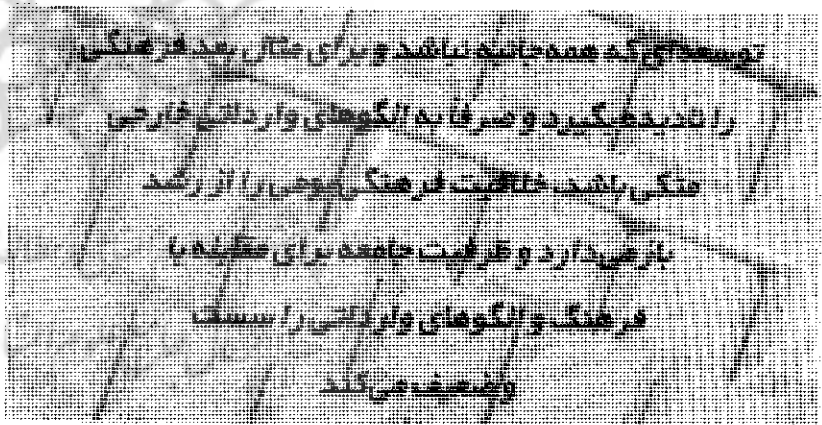 توسعه‌ای که همه‌جانبه نباشد و برای مثال بعد فرهنگی
را نادیده بگیرد و صرفاً به الگوهای وارداتی خارجی
متکی باشد، خلاقیت فرهنگی بومی را از رشد
بازمی‌دارد و ظرفیت جامعه برای مقابله با
فرهنگ و الگوهای وارداتی را سست
وضعیف می‌کند